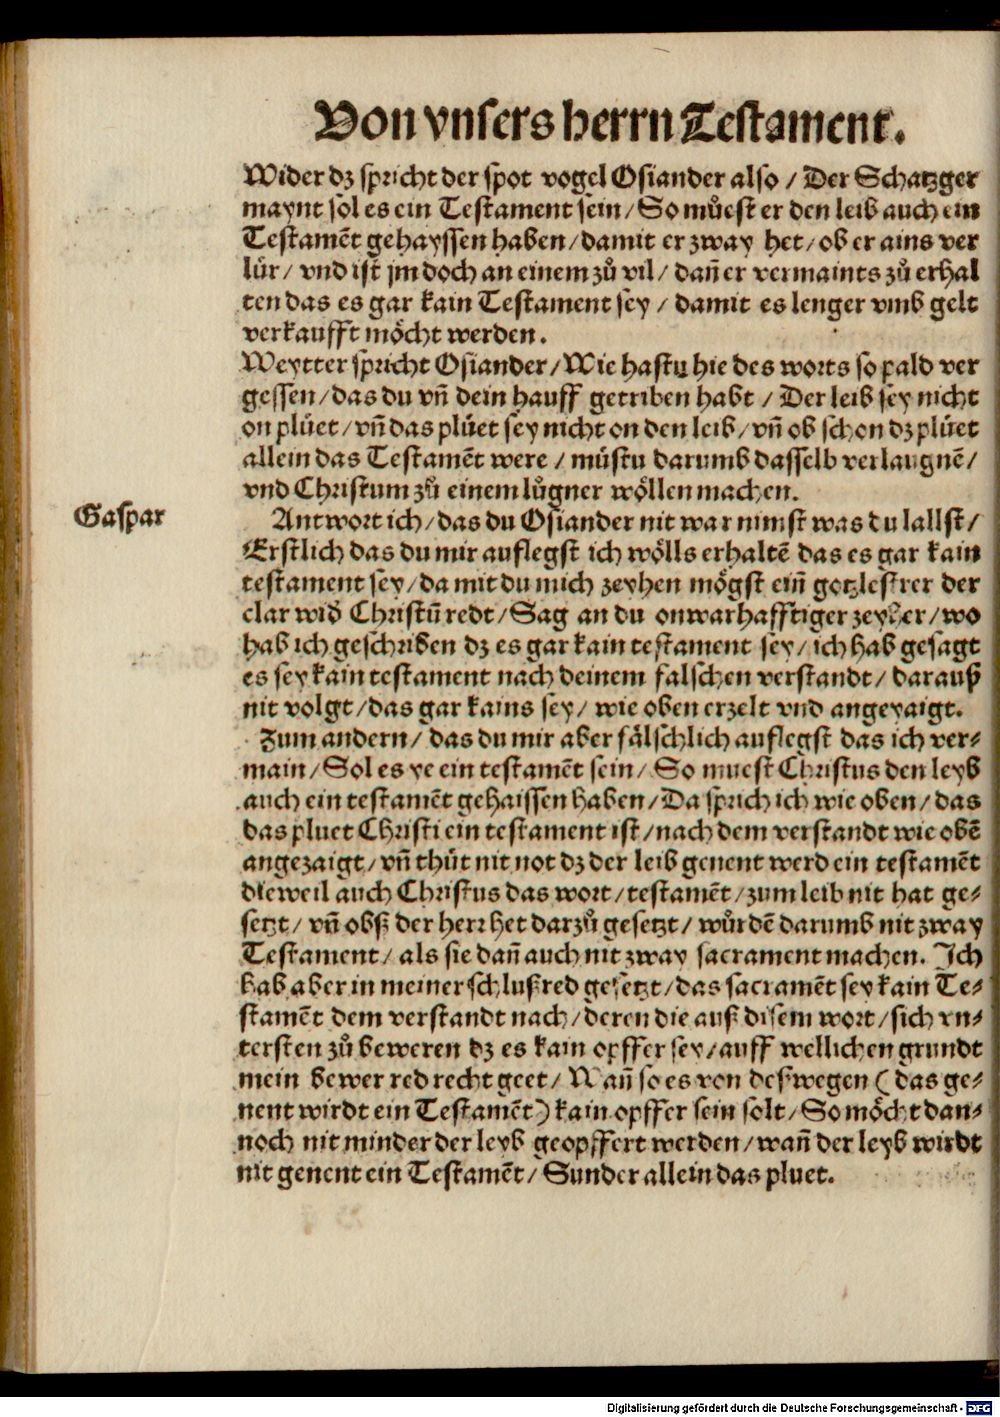 Von vnsers herrn Testament.
Wider dz spricht der spot vogel Osiander also / Der Schatzger
maynt sol es ein Testament sein / So muͤest er den leib auch ein
Testamēt gehayssen haben / damit er zway het / ob er ains ver
luͤr / vnd ist jm doch an einem zuͦ vil / dañ er vermaints zuͦ erhal
ten das es gar kain Testament sey / damit es lenger vmb gelt
verkaufft moͤcht werden.
Weytter spricht Osiander / Wie hastu hie des worts so pald ver
gessen / das du vñ dein hauff getriben habt / Der leib sey nicht
on pluͤet / vñ das pluͤet sey nicht on den leib / vñ ob schon dz pluͤet
allein das Testamēt were / muͤstu darumb dasselb verlaugnē /
vnd Christum zuͦ einem luͤgner woͤllen machen.
Gaspar
Antwort ich / das du Osiander nit war nimst was du lallst /
Erstlich das du mir auflegst ich woͤlls erhaltē das es gar kain
testament sey / da mit du mich zeyhen moͤgst eiñ gotzlestrer der
clar wid̄ Christū redt / Sag an du onwarhafftiger zeyher / wo
hab ich geschriben dz es gar kain testament sey / ich hab gesagt
es sey kain testament nach deinem falschen verstandt / darauß
nit volgt / das gar kains sey / wie oben erzelt vnd angeyaigt.
Zum andern / das du mir aber faͤlschlich auflegst das ich ver⸗
main / Sol es ye ein testamēt sein / So muest Christus den leyb
auch ein testamēt gehaissen haben / Da sprich ich wie oben / das
das pluet Christi ein testament ist / nach dem verstandt wie obē
angezaigt / vñ thuͤt nit not dz der leib genent werd ein testamēt
dieweil auch Christus das wort / testamēt / zum leib nit hat ge⸗
setzt / vñ obß der herr het darzuͦ gesetzt / wuͤrdē darumb nit zway
Testament / als sie dañ auch nit zway sacrament machen. Ich
hab aber in meiner schlußred gesetzt / das sacramēt sey kain Te⸗
stamēt dem verstandt nach / deren die auß disem wort / sich vn⸗
tersten zuͦ beweren dz es kain opffer sey / auff wellichen grundt
mein bewer red recht geet / Nañ so es von deßwegen (das ge⸗
nent wirdt ein Testamēt) kain opffer sein solt / So moͤcht dan⸗
noch nit minder der leyb geopffert werden / wañ der leyb wirdt
nit genent ein Testamēt / Sunder allein das pluet.
Digitalisierung gefördert durch die Deutsche Forschungsgemeinschaft - DFG